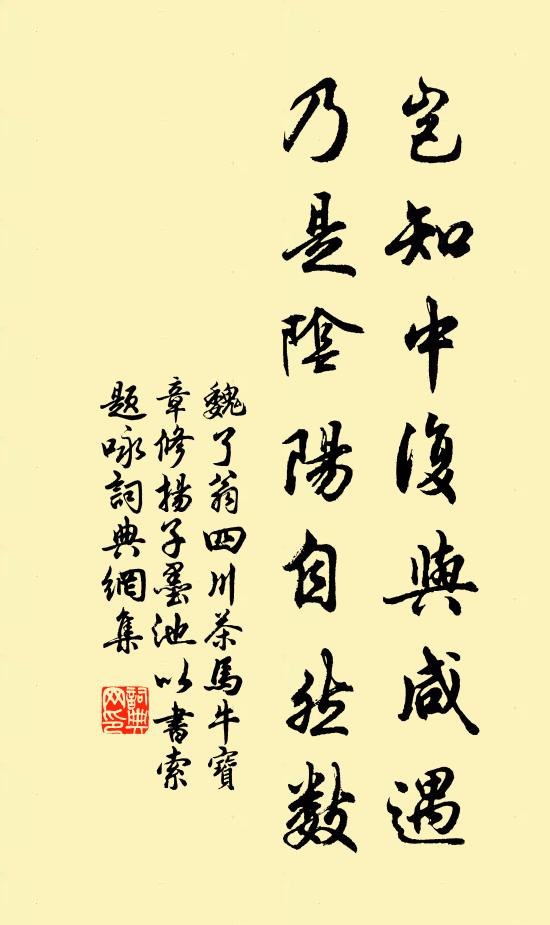 豈知中復與咸遇
乃是陰陽自然數
魏了翁四川茶馬牛寶
章修揚子墨池以書索
題咏詞典網集
詞典網印